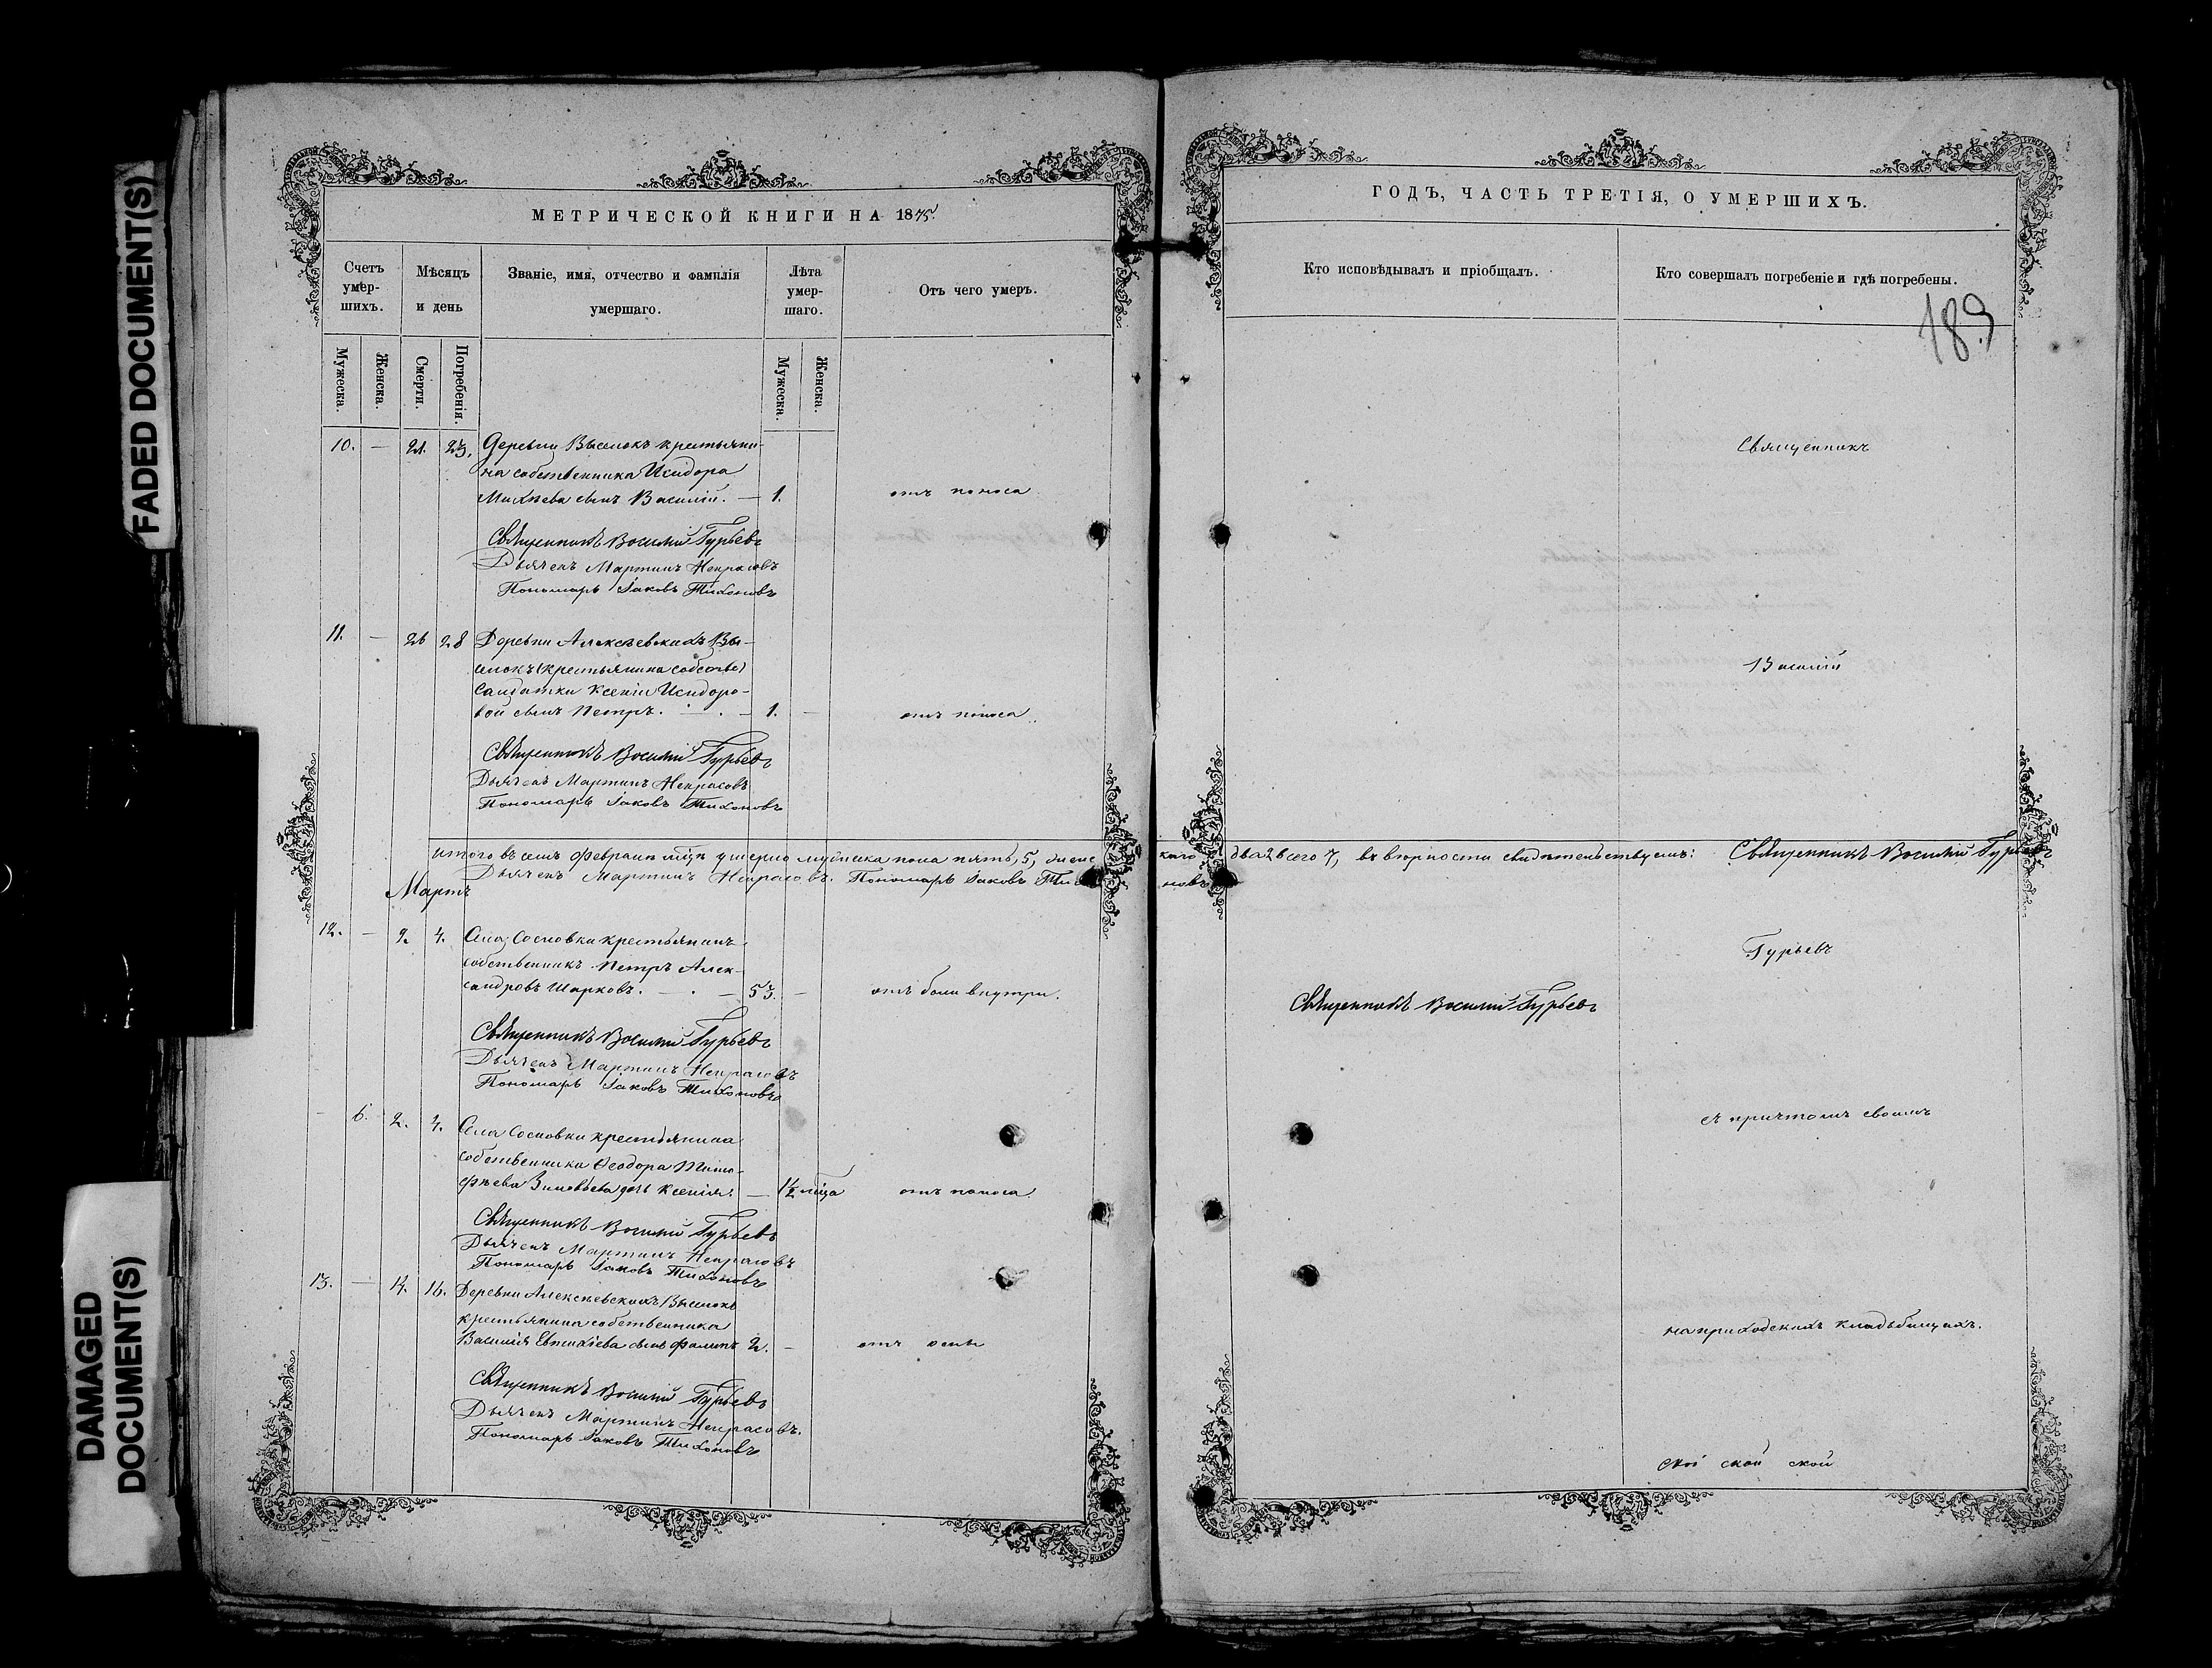 FADED DOCUMENT(S)
DAMAGED
DOCUMENT(S)
МЕТРИЧЕСКОЙ КНИГИ НА 1875
Счетъ умер-шихъ.
Мѣсяцъ и день
Званіе, имя, отчество и фамилія умершаго.
Лѣта умер-шаго.
Отъ чего умеръ.
Мужеска.
Женска.
Смерти.
Погребенія.
Мужеска.
Женска.
10. — 21. 23. Деревни Выселокъ крестьяни-
на собственника Исидора
Михѣева сынъ Василій. — 1. отъ поноса
Священникъ Василій Гурьевъ
Дьячекъ Мартинъ Некрасовъ
Пономарь Іаковъ Тихоновъ
11. — 26 28 Деревни Алексѣевскихъ Вы-
селокъ (крестьянина собстве)
Салдатки Ксеніи Исидоро-
вой сынъ Петръ. — 1. — отъ поноса
Священникъ Василій Гурьевъ
Дьячекъ Мартинъ Некрасовъ
Пономарь Іаковъ Тихоновъ
Итого въ семъ Февралѣ мѣсцѣ умерло мужеска пола пять, 5, женс
Дьячекъ Мартинъ Некрасовъ. Пономарь Іаковъ Тихо
Мартъ
12. — 2. 4. Села Сосновки крестьянинъ
собственникъ Петръ Алек-
сандровъ Шарковъ. — 53. — отъ боли внутри.
Священникъ Василій Гурьевъ
Дьячекъ Мартинъ Некрасовъ
Пономарь Іаковъ Тихоновъ
— 6. 2. 4. Села Сосновки крестьянина
собственника Ѳеодора Тимо-
фѣева Зиновьева дочь Ксенія. — 1½ мѣсца отъ поноса.
Священникъ Василій Гурьевъ
Дьячекъ Мартинъ Некрасовъ
Пономарь Іаковъ Тихоновъ
13. — 14. 16. Деревни Алексѣевскихъ Выселокъ
крестьянина собственника
Василія Евтихіева сынъ 2. — отъ оспы
Священникъ Василій Гурьевъ
Дьячекъ Мартинъ Некрасовъ.
Пономарь Іаковъ Тихоновъ
ГОДЪ, ЧАСТЬ ТРЕТІЯ, О УМЕРШИХЪ.
Кто исповѣдывалъ и пріобщалъ.
Кто совершалъ погребеніе и гдѣ погребены.
189
Священникъ
Василій
каго два 2 всего 7, въ вѣрности свидѣтельствуемъ: Священникъ Василій Гурьевъ
новъ
Гурьевъ
Священникъ Василій Гурьевъ
съ причтомъ своимъ
на приходскихъ кладбищахъ.